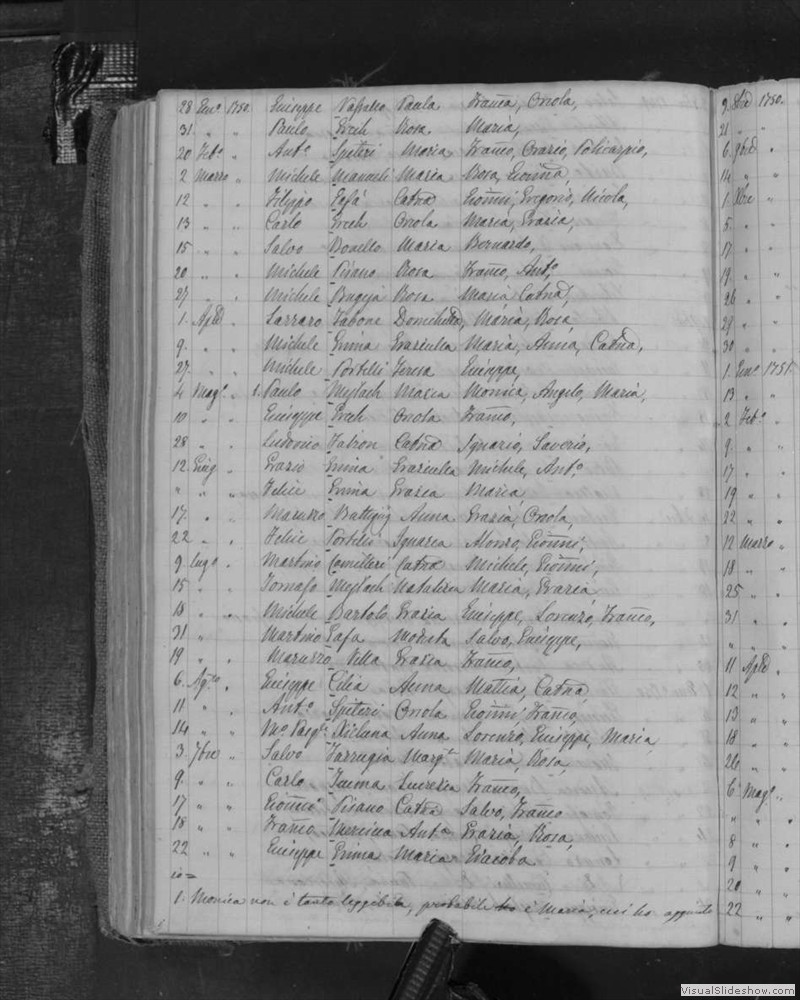 28 Enn.o 1750. Giuseppe Vassallo Paula Franca, Orsola,
31 " " Paulo Grech Rosa Maria,
20 Feb.o " Ant.o Spiteri Maria Franco, Orazio, Policarpio,
2 Marzo " Michele Manueli Maria Rosa, Gioanna,
12 " " Filippo Fafá Catna Gionni, Gregorio, Nicola,
13 " " Carlo Grech Orsola Maria, Grazia,
15 " " Salvo Bonello Maria Bernardo,
20 " " Michele Pisano Rosa Franco, Ant.o,
27 " " Michele Bugeja Rosa Maria Catna,
1. April " Lazzaro Zabone Domcilla, Maria, Rosa
9. " " Michele Grima Graziulla Maria, Anna, Catna,
27. " " Michele Portelli Teresa Giuseppe,
4 Mag.o " 1. Paulo Meylach Maria Monica, Angelo, Maria,
10 " " Giuseppe Grech Orsola Franco,
28 " " Ludovico Falzon Catna Ignazio, Saverio,
12. Giug " Grazio Grima Graziulla Michele, Ant.o
" " " Felice Grima Grazia Maria
17. " " Maruzzo Buttigieg Anna Grazia, Orsola,
22 " " Felice Portelli Ignazia Alonzo, Gionni,
9. Lug.o " Martino Camilleri Catna Michele, Gionni,
15 " " Tomaso Meylach Natalizia Maria, Grazia
18 " " Michele Bartolo Grazia Giuseppe, Lorenzo, Franco,
31 " Martino Fafa Modesta Salvo, Giuseppe,
19 " " Maruzzo Vella Grazia Franco,
6. Ag.to " Giuseppe Cilia Anna Mattia, Catna
11 " " Ant.o Spiteri Orsola Gionni, Franco,
14 " " Xicluna Anna Lorenzo, Giuseppe, Maria
3. 7bre " Salvo Farrugia Marg.ta Maria, Rosa,
9. " " Carlo Tauma Lucrezia Franco,
17 " " Gionni Pisano Catna Salvo, Franco
18 " " Franco Mercieca Ant.a Grazia, Rosa,
22 " " Giuseppe Grima Maria Giacoba
io=
1. Monica non è tanto leggibile, probabile è Maria,
9. 8bre 1750.
21 " "
6. 9bre "
14 " "
1. Xbre "
5. " "
17 " "
19. " "
26 " "
27 " "
30 " "
1. Enn.o 1751.
13 " "
2 Feb.o "
9. " "
17 " "
19 " "
22 " "
12 Marzo "
18 " "
25 " "
31 " "
" " "
11 April "
12 " "
13 " "
18 " "
26 " "
6. Mag.o "
" " "
8 " "
9 " "
20 " "
22 " "
VisualSlideshow.com